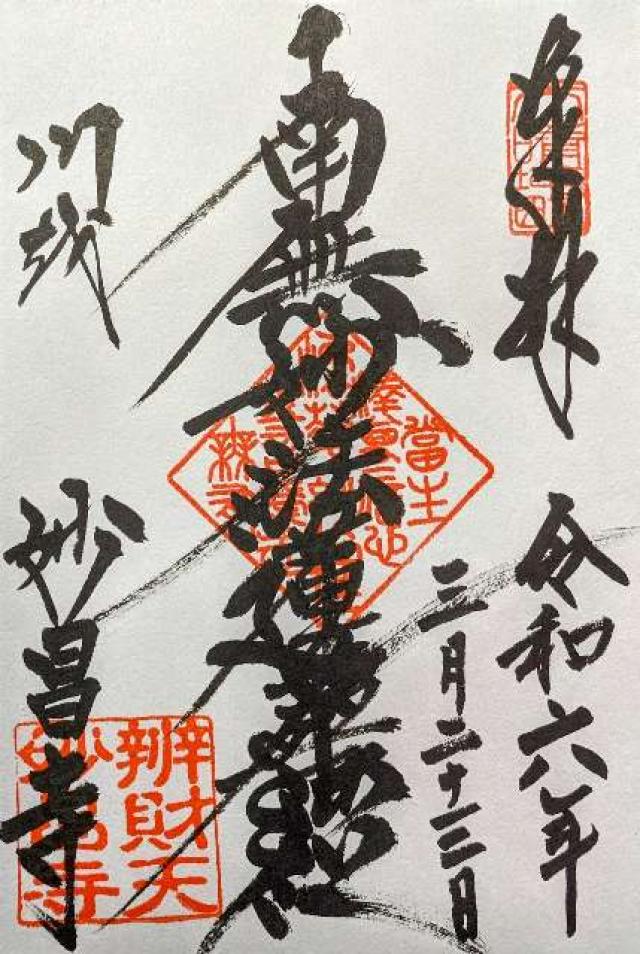 奉拝
令和六年
三月二十三日
南無妙法蓮華経
川越
妙昌寺
辨財天
妙昌寺